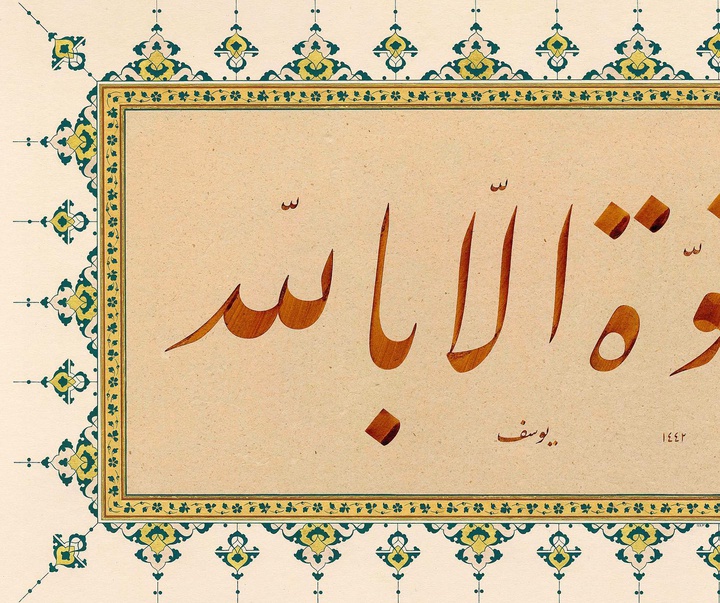 وّة الّا باللّه
١٤٤٢ يوسف